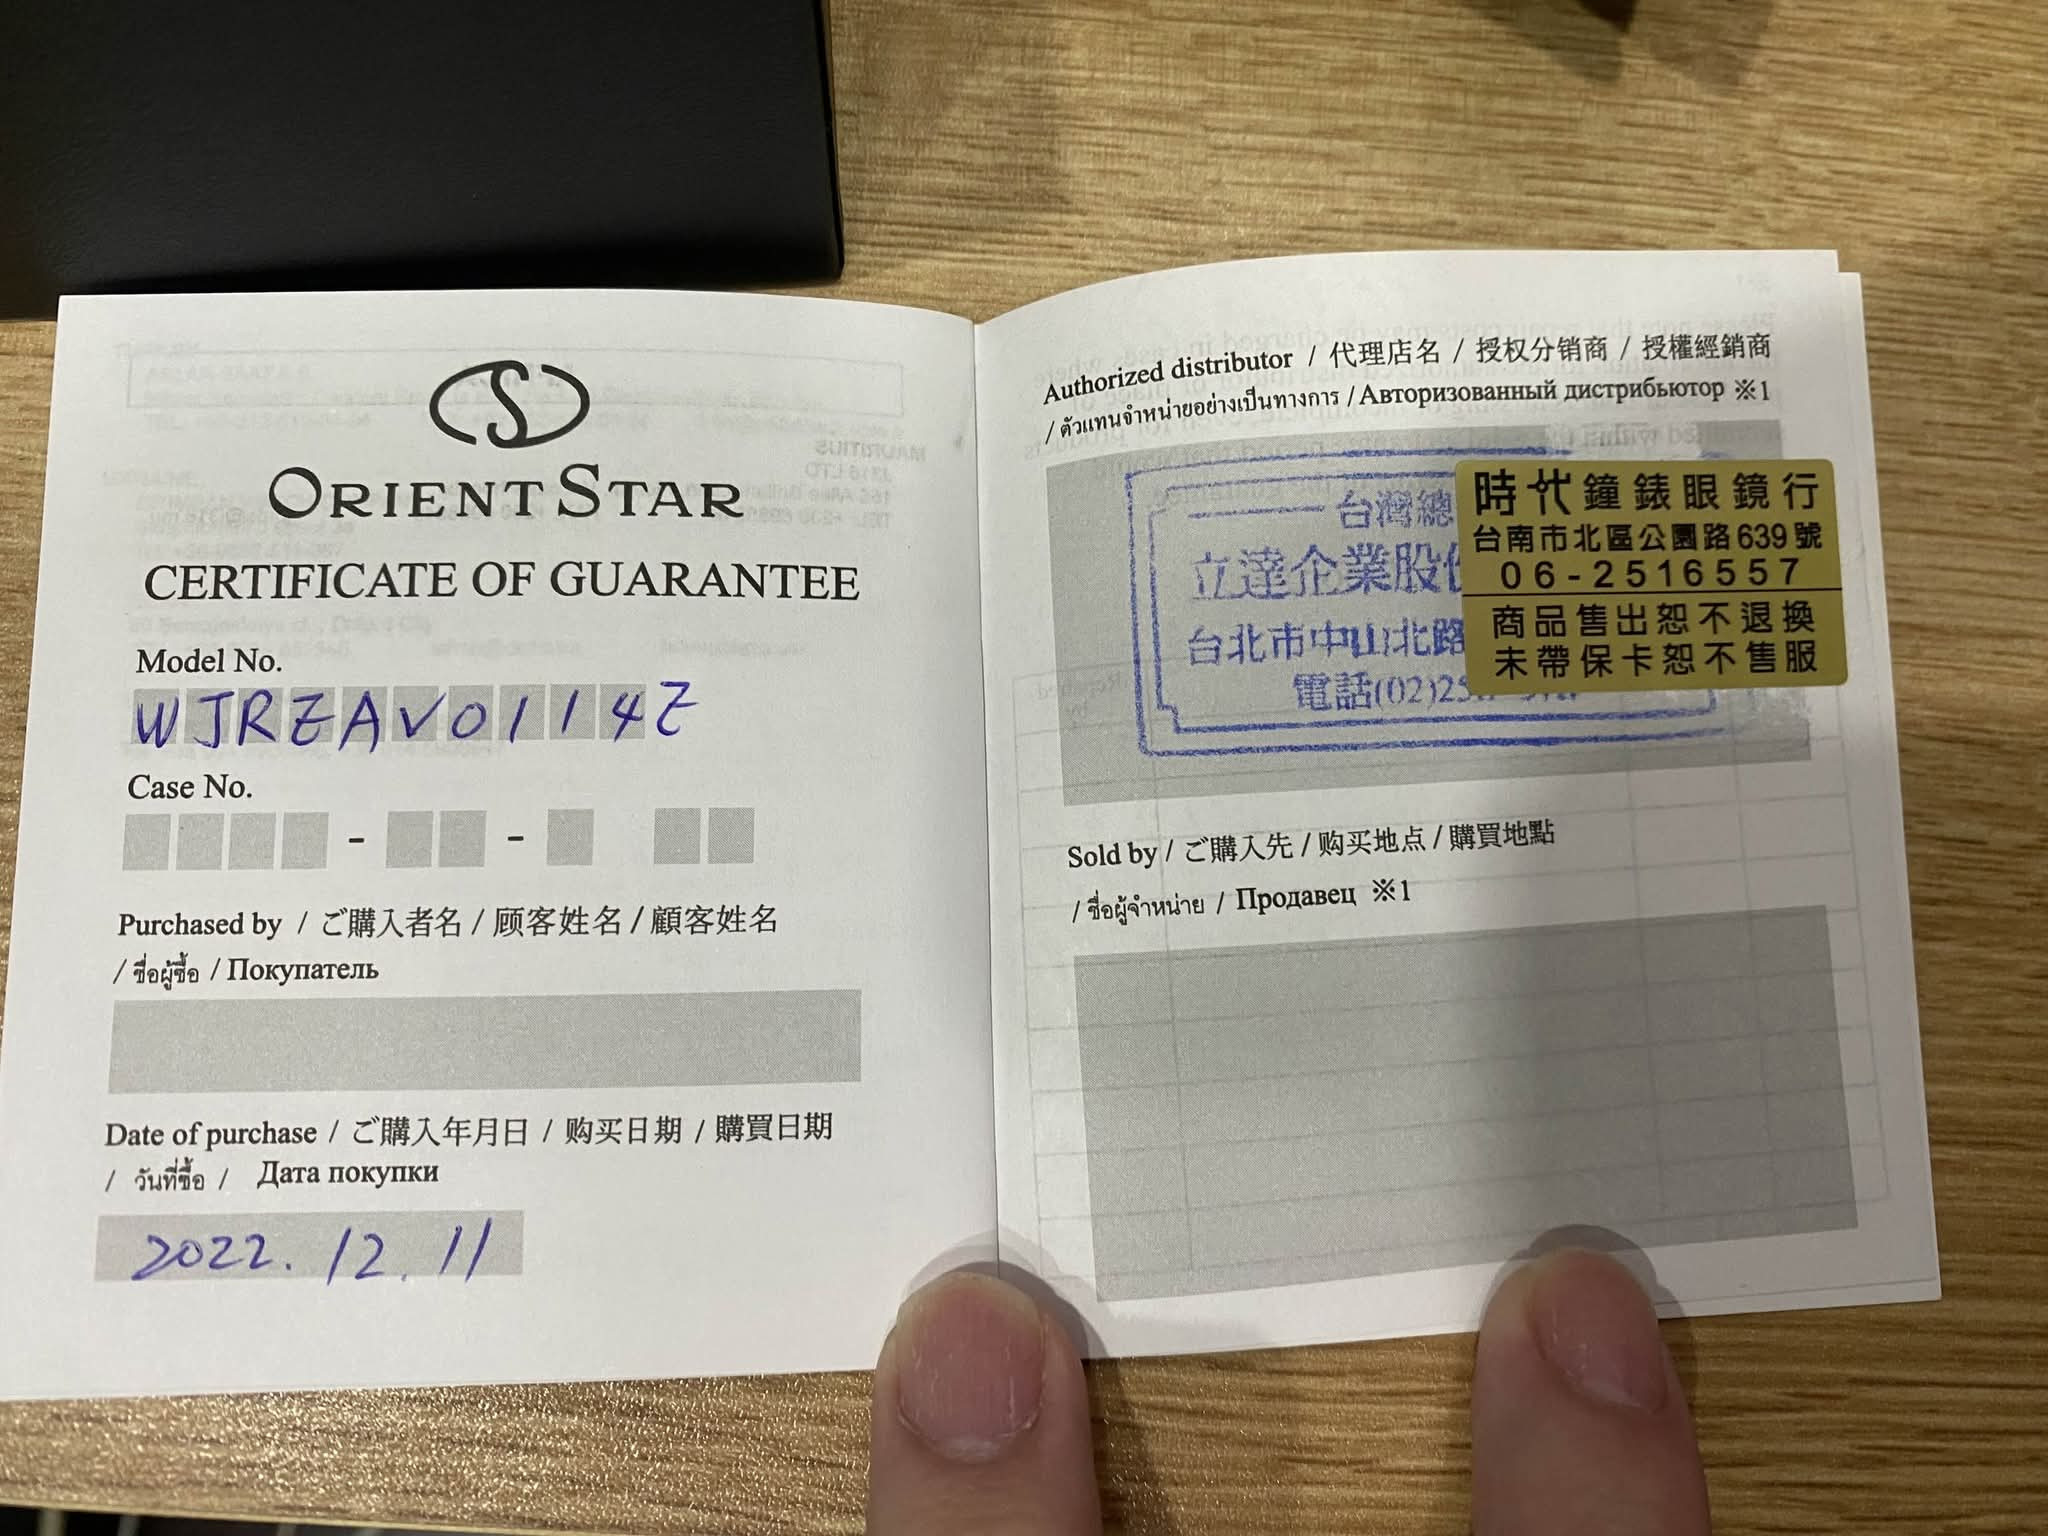 ORIENT STAR
CERTIFICATE OF GUARANTEE
Model No.
WJRZAV0114Z
Case No.
- -
Purchased by / ご購入者名 / 顾客姓名 / 顧客姓名
/ ชื่อผู้ซื้อ / Покупатель
Date of purchase / ご購入年月日 / 购买日期 / 購買日期
/ วันที่ซื้อ / Дата покупки
2022.12.11
Authorized distributor / 代理店名 / 授权分销商 / 授權經銷商
/ ตัวแทนจำหน่ายอย่างเป็นทางการ / Авторизованный дистрибьютор ※1
台灣總
立達企業股份
台北市中山北路
電話(02)
時代鐘錶眼鏡行
台南市北區公園路639號
06-2516557
商品售出恕不退換
未帶保卡恕不售服
Sold by / ご購入先 / 购买地点 / 購買地點
/ ชื่อผู้จำหน่าย / Продавец ※1
MAURITIUS